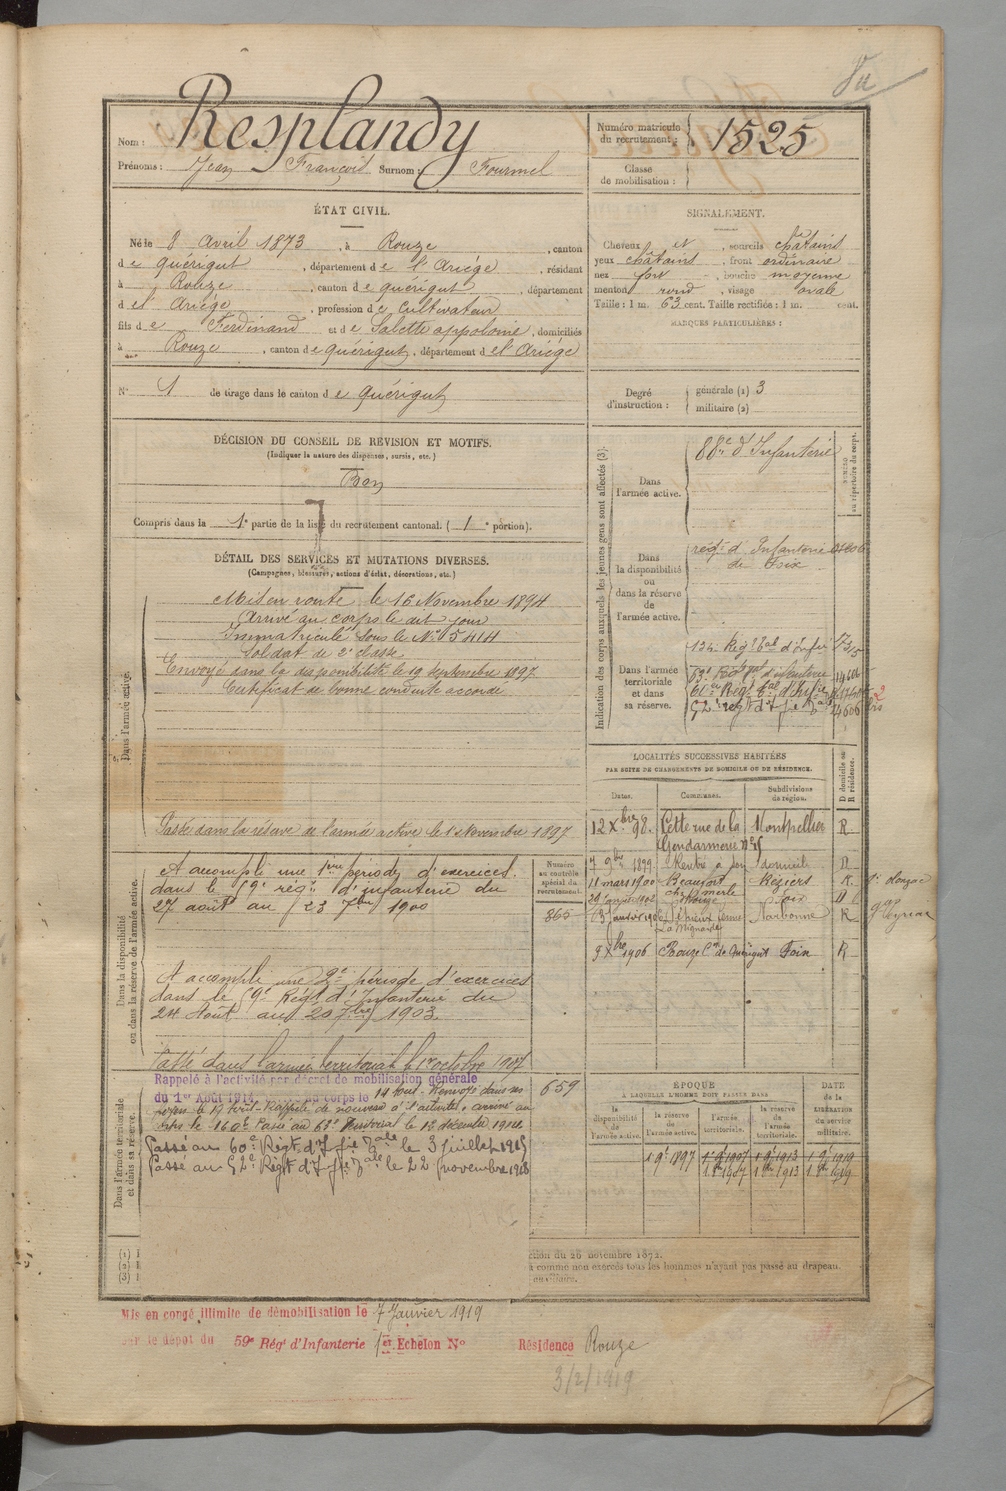 Vu
Nom : Resplandy
Prénoms : Jean François Surnom : Fourmel
Numéro matricule du recrutement : 1525
Classe de mobilisation :
ÉTAT CIVIL.
Né le 8 Avril 1873, à Rouze, canton
de Quérigut, département de l'Ariége, résidant
à Rouze, canton de Quérigut, département
de l'Ariége, profession de Cultivateur
fils de Ferdinand et de Salette appolonie, domiciliés
à Rouze, canton de Quérigut, département de l'Ariége
N° 1 de tirage dans le canton de Quérigut
SIGNALEMENT.
Cheveux et, sourcils châtains
yeux châtains, front ordinaire
nez fort, bouche moyenne
menton rond, visage ovale
Taille : 1 m. 63 cent. Taille rectifiée : 1 m. cent.
MARQUES PARTICULIÈRES :
Degré d'instruction : générale (1) 3
militaire (2)
DÉCISION DU CONSEIL DE REVISION ET MOTIFS.
(Indiquer la nature des dispenses, sursis, etc.)
Bon
Compris dans la 1e partie de la liste du recrutement cantonal. ( 1e portion).
DÉTAIL DES SERVICES ET MUTATIONS DIVERSES.
(Campagnes, blessures, actions d'éclat, décorations, etc.)
Dans l'armée active.
Mis en route le 16 Novembre 1894
Arrivé au corps le dit jour
Immatriculé sous le N° 5414
Soldat de 2e classe
Envoyé dans la disponibilité le 19 Septembre 1897
Certificat de bonne conduite accordé
Passé dans la réserve de l'armée active le 1 Novembre 1897
Indication des corps auxquels les jeunes gens sont affectés (3).
NUMÉRO au répertoire du corps.
Dans l'armée active.
88e d'Infanterie
Dans la disponibilité ou dans la réserve de l'armée active.
régt d'Infanterie
de Foix
Dans l'armée territoriale et dans sa réserve.
134e Régt tal d'Infie
LOCALITÉS SUCCESSIVES HABITÉES
PAR SUITE DE CHANGEMENTS DE DOMICILE OU DE RÉSIDENCE.
Dates. Communes. Subdivisions de région. D domicile ou R résidence.
12 Xbre 98. Cette rue de la Gendarmerie Montpellier R
7 9bre 1899 Rentré à son domicile D
11 mars 1900 Beaufort Béziers R
Rouze Foix D
Narbonne R
9 Xbre 1906 Rouze Con de Quérigut Foix R
Dans la disponibilité ou dans la réserve de l'armée active.
A accompli une 1ère période d'exercices
dans le 59e régt d'infanterie du
27 août au 23 7bre 1900
Numéro au contrôle spécial du recrutement.
865
A accompli une 2e période d'exercices
dans le 59e Régt d'Infanterie du
24 Août au 20 7bre 1903.
Passé dans l'armée territoriale le 1er octobre 1907
659
Dans l'armée territoriale et dans sa réserve.
Rappelé à l'activité par décret de mobilisation générale
du 1er Août 1914. au corps le 14 Août. Renvoyé dans ses
foyers le 19 Août. Rappelé de nouveau à l'activité, arrivé au
corps le
Passé au 60e Régt d'Infie Tale le 3 juillet 1915
Passé au 52e Régt d'Infie Tale le 22 novembre 1916
ÉPOQUE
A LAQUELLE L'HOMME DOIT PASSER DANS
DATE DE LA LIBÉRATION du service militaire.
la disponibilité de l'armée active. la réserve de l'armée active. l'armée territoriale. la réserve de l'armée territoriale.
1 9e 1897 1 9e 1907 1 9e 1913 1 9e 1919
1 8bre 1907 1 8bre 1913 1 8bre 1919
(1)
(2)
(3)
du 26 novembre 1872.
comme non exercés tous les hommes n'ayant pas passé au drapeau.
Mis en congé illimité de démobilisation le 7 Janvier 1919
par le dépôt du 59e Régt d'Infanterie 1er Echelon N° Résidence Rouze
3/2/1919